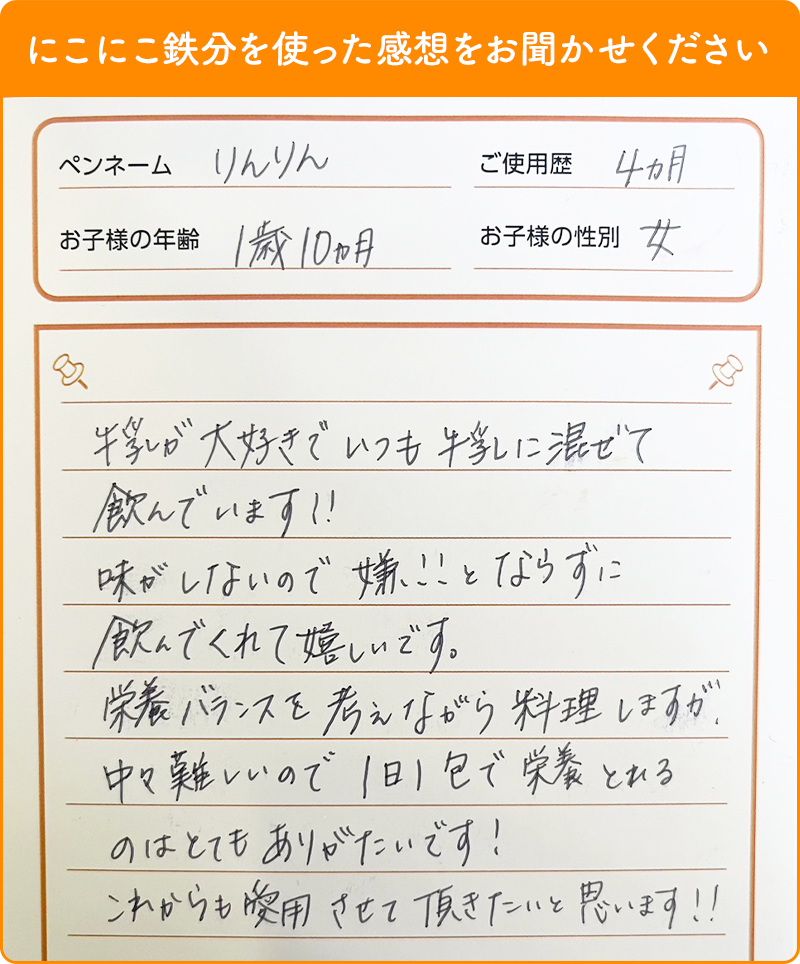 にこにこ鉄分を使った感想をお聞かせください
ペンネーム りんりん
ご使用歴 4ヵ月
お子様の年齢 1歳10ヵ月
お子様の性別 女
牛乳が大好きでいつも牛乳に混ぜて
飲んでいます!!
味がしないので嫌!!とならずに
飲んでくれて嬉しいです。
栄養バランスを考えながら料理しますが、
中々難しいので1日1包で栄養とれる
のはとてもありがたいです!
これからも愛用させて頂きたいと思います!!